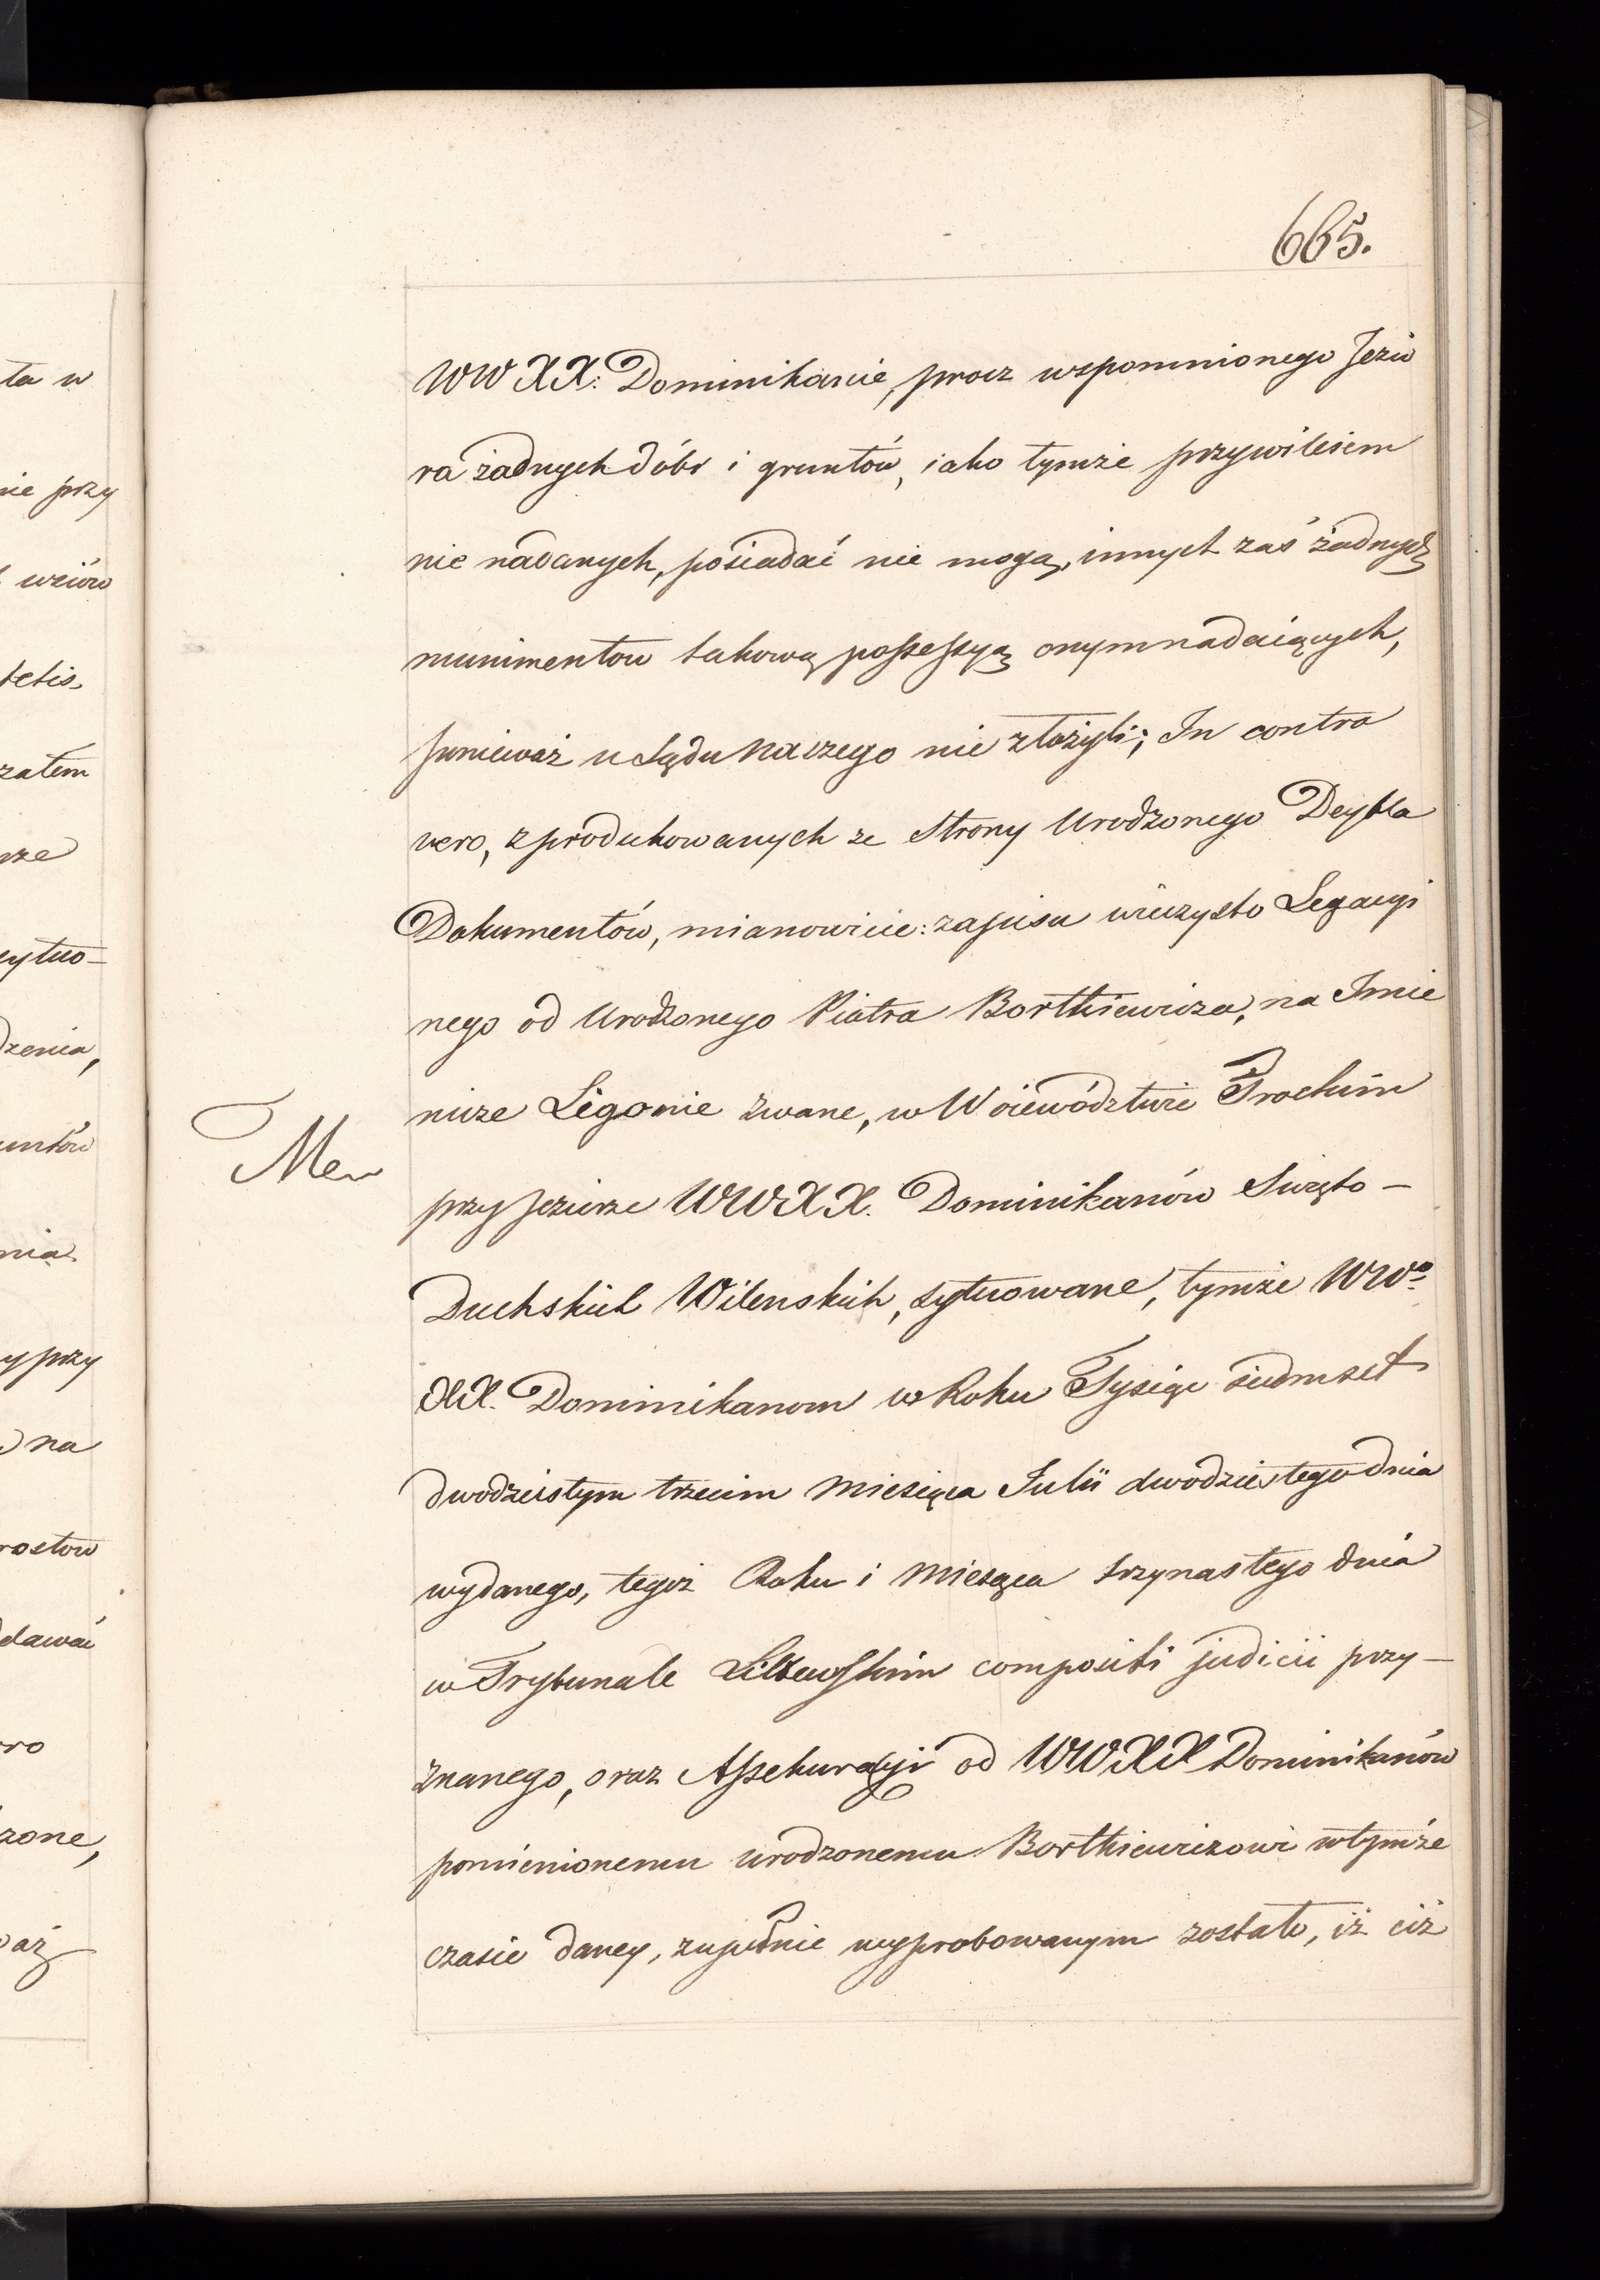 665.
WW XX: Dominikanie, procz wspomnionego Jezio
ra żadnych dóbr i gruntów, iako tymże przywileiem
nie nadanych, posiadać nie mogą, innych zaś żadnych
munimentow takową possessyą onym nadaiących,
ponieważ u Sądu Naszego nie złożyli; In contra
vero, z produkowanych ze Strony Urodzonego Deybla
Dokumentów, mianowicie: zapisu wieczysto Legacyi
nego od Urodzonego Piotra Bortkiewicza, na Imie
nicze Ligonie zwane, w Woiewództwie Trockim
Me
przy Jezierze WWXX. Dominikanów Swięto-
Duchskich Wilenskich, sytuowane, tymże WWo
XX. Dominikanom w Roku Tysiąc siedmset
dwodziestym trzecim Miesiąca Julii dwodziestego dnia
wydanego, tegoż Roku i Miesąca trzynastego dnia
w Trybunale Littewskim compositi judicii przy-
znanego, oraz Assekuracyi od WWXX Dominikanów
pomienionemu urodzonemu Bortkiewiczowi w tymże
czasie daney, zupełnie wyprobowanym zostało, iż ciż
ta w
nie przy
wziów
tetis
zatem
sytuo-
dzenia,
untów
nia
y przy
na
rostow
dawać
ro
zone,
aż